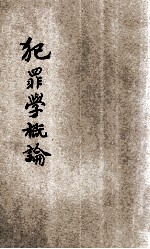 犯罪學概論